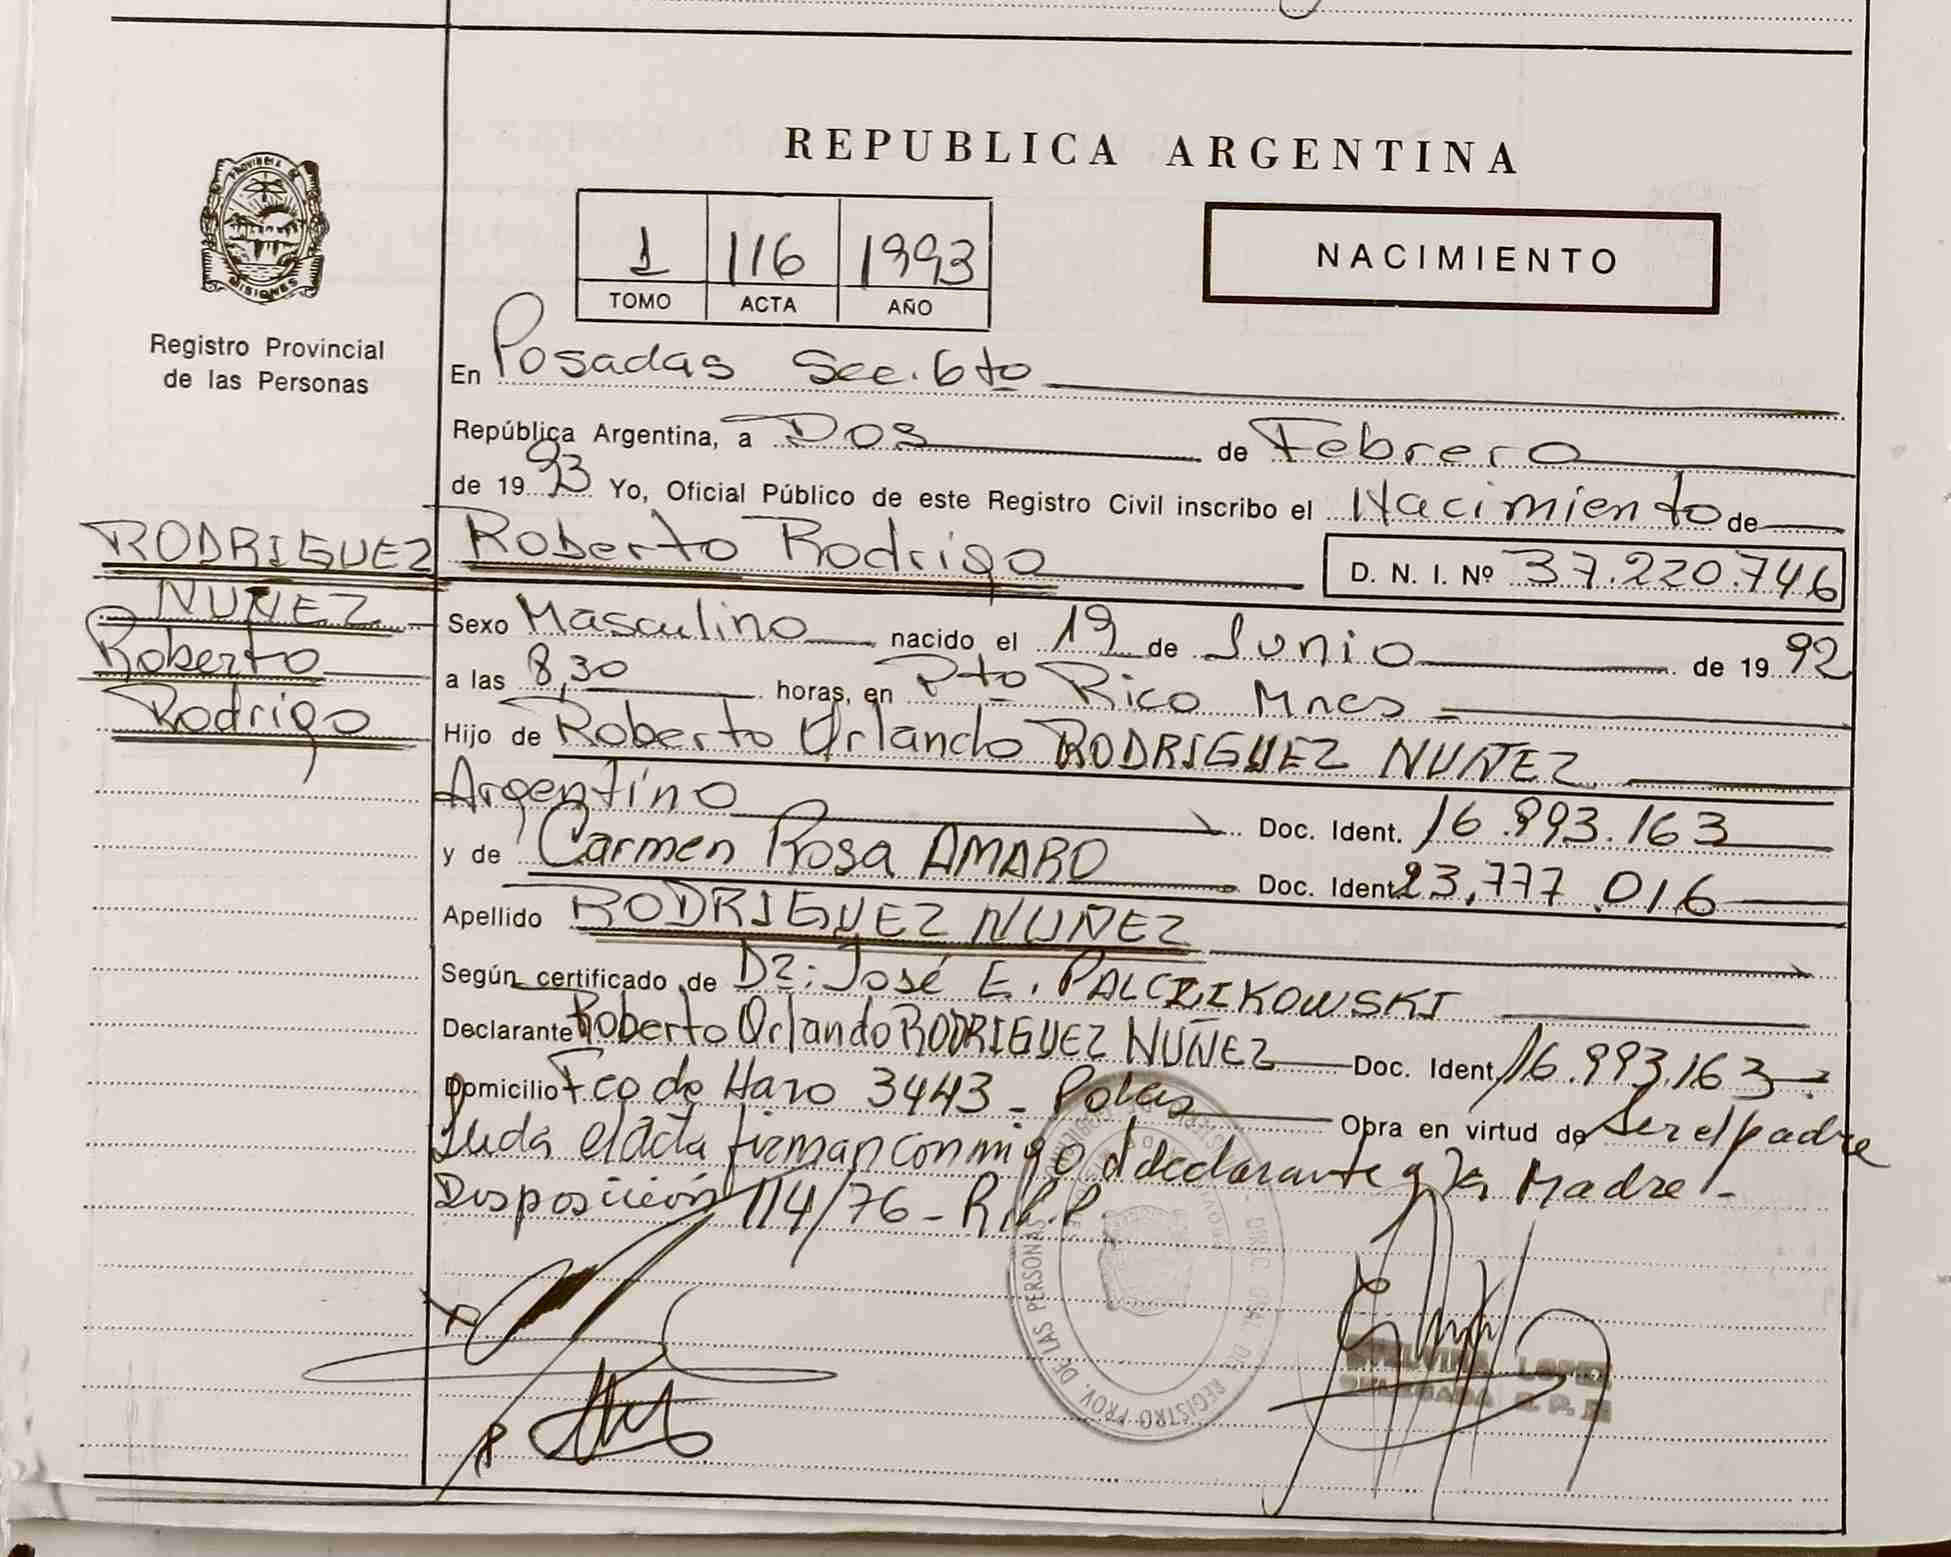 REPUBLICA ARGENTINA
PROVINCIA DE
MISIONES
Registro Provincial
de las Personas
1 116 1993
TOMO ACTA AÑO
NACIMIENTO
En Posadas Sec. 6to
República Argentina, a Dos de Febrero
de 19 93 Yo, Oficial Público de este Registro Civil inscribo el Nacimiento de
RODRIGUEZ
NUÑEZ
Roberto
Rodrigo
Roberto Rodrigo D. N. I. Nº 37.220.746
Sexo Masculino nacido el 19 de Junio de 19 92
a las 8,30 horas, en Pto Rico Mnes
Hijo de Roberto Orlando RODRIGUEZ NUÑEZ
Argentino Doc. Ident. 16.993.163
y de Carmen Rosa AMARO Doc. Ident. 23,777.016
Apellido RODRIGUEZ NUÑEZ
Según certificado de Dr: José E. PALCZIKOWSKI
Declarante Roberto Orlando RODRIGUEZ NUÑEZ Doc. Ident. 16.993.163
Domicilio Fco de Haro 3443 - Pdas Obra en virtud de ser el padre
el acta firman conmigo el declarante y la Madre -
Disposición 114/76 - R.P.P.
REGISTRO PROV. DE LAS PERSONAS
DIREC. GRAL. DEL
LOPEZ
DELEGADA R. P. P.